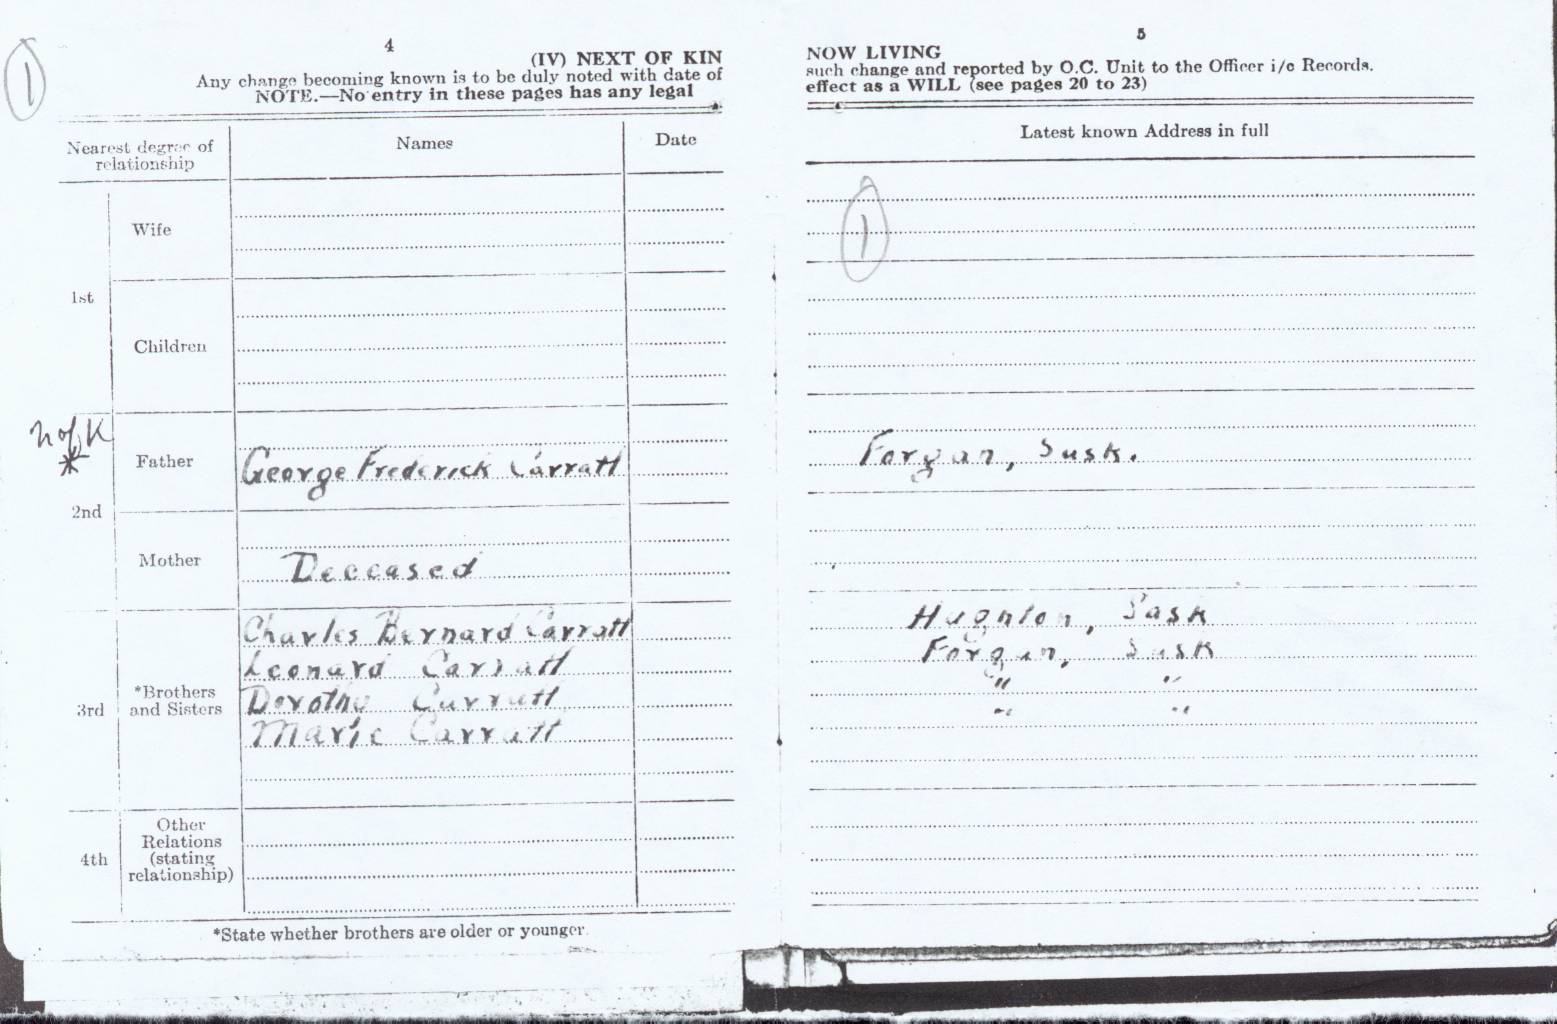 1
4
(IV) NEXT OF KIN
Any change becoming known is to be duly noted with date of
NOTE.—No entry in these pages has any legal
Nearest degree of relationship
Names
Date
1st
Wife
Children
N of K
*
2nd
Father
George Frederick Carratt
Mother
Deceased
3rd
*Brothers and Sisters
Charles Bernard Carratt
Leonard Carratt
Dorothy Carratt
Marie Carratt
4th
Other Relations (stating relationship)
*State whether brothers are older or younger.
5
NOW LIVING
such change and reported by O.C. Unit to the Officer i/c Records.
effect as a WILL (see pages 20 to 23)
Latest known Address in full
1
Forgan, Sask.
Hughton, Sask
Forgan, Sask
" "
" "